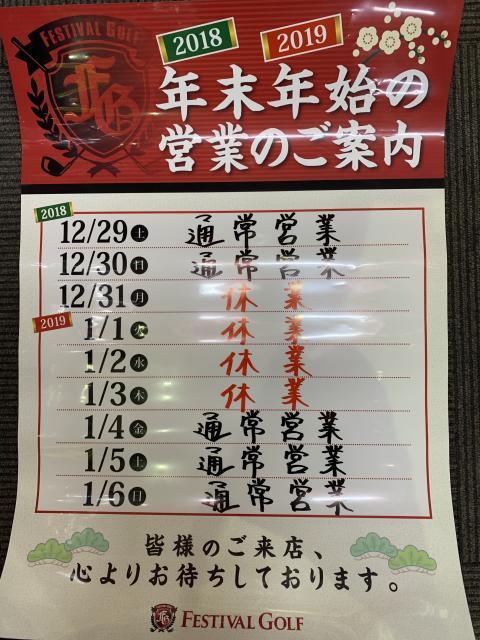 FESTIVAL GOLF
FG
2018 2019
年末年始の
営業のご案内
2018
12/29 土 通常営業
12/30 日 通常営業
12/31 月 休業
2019
1/1 火 休業
1/2 水 休業
1/3 木 休業
1/4 金 通常営業
1/5 土 通常営業
1/6 日 通常営業
皆様のご来店、
心よりお待ちしております。
FESTIVAL GOLF